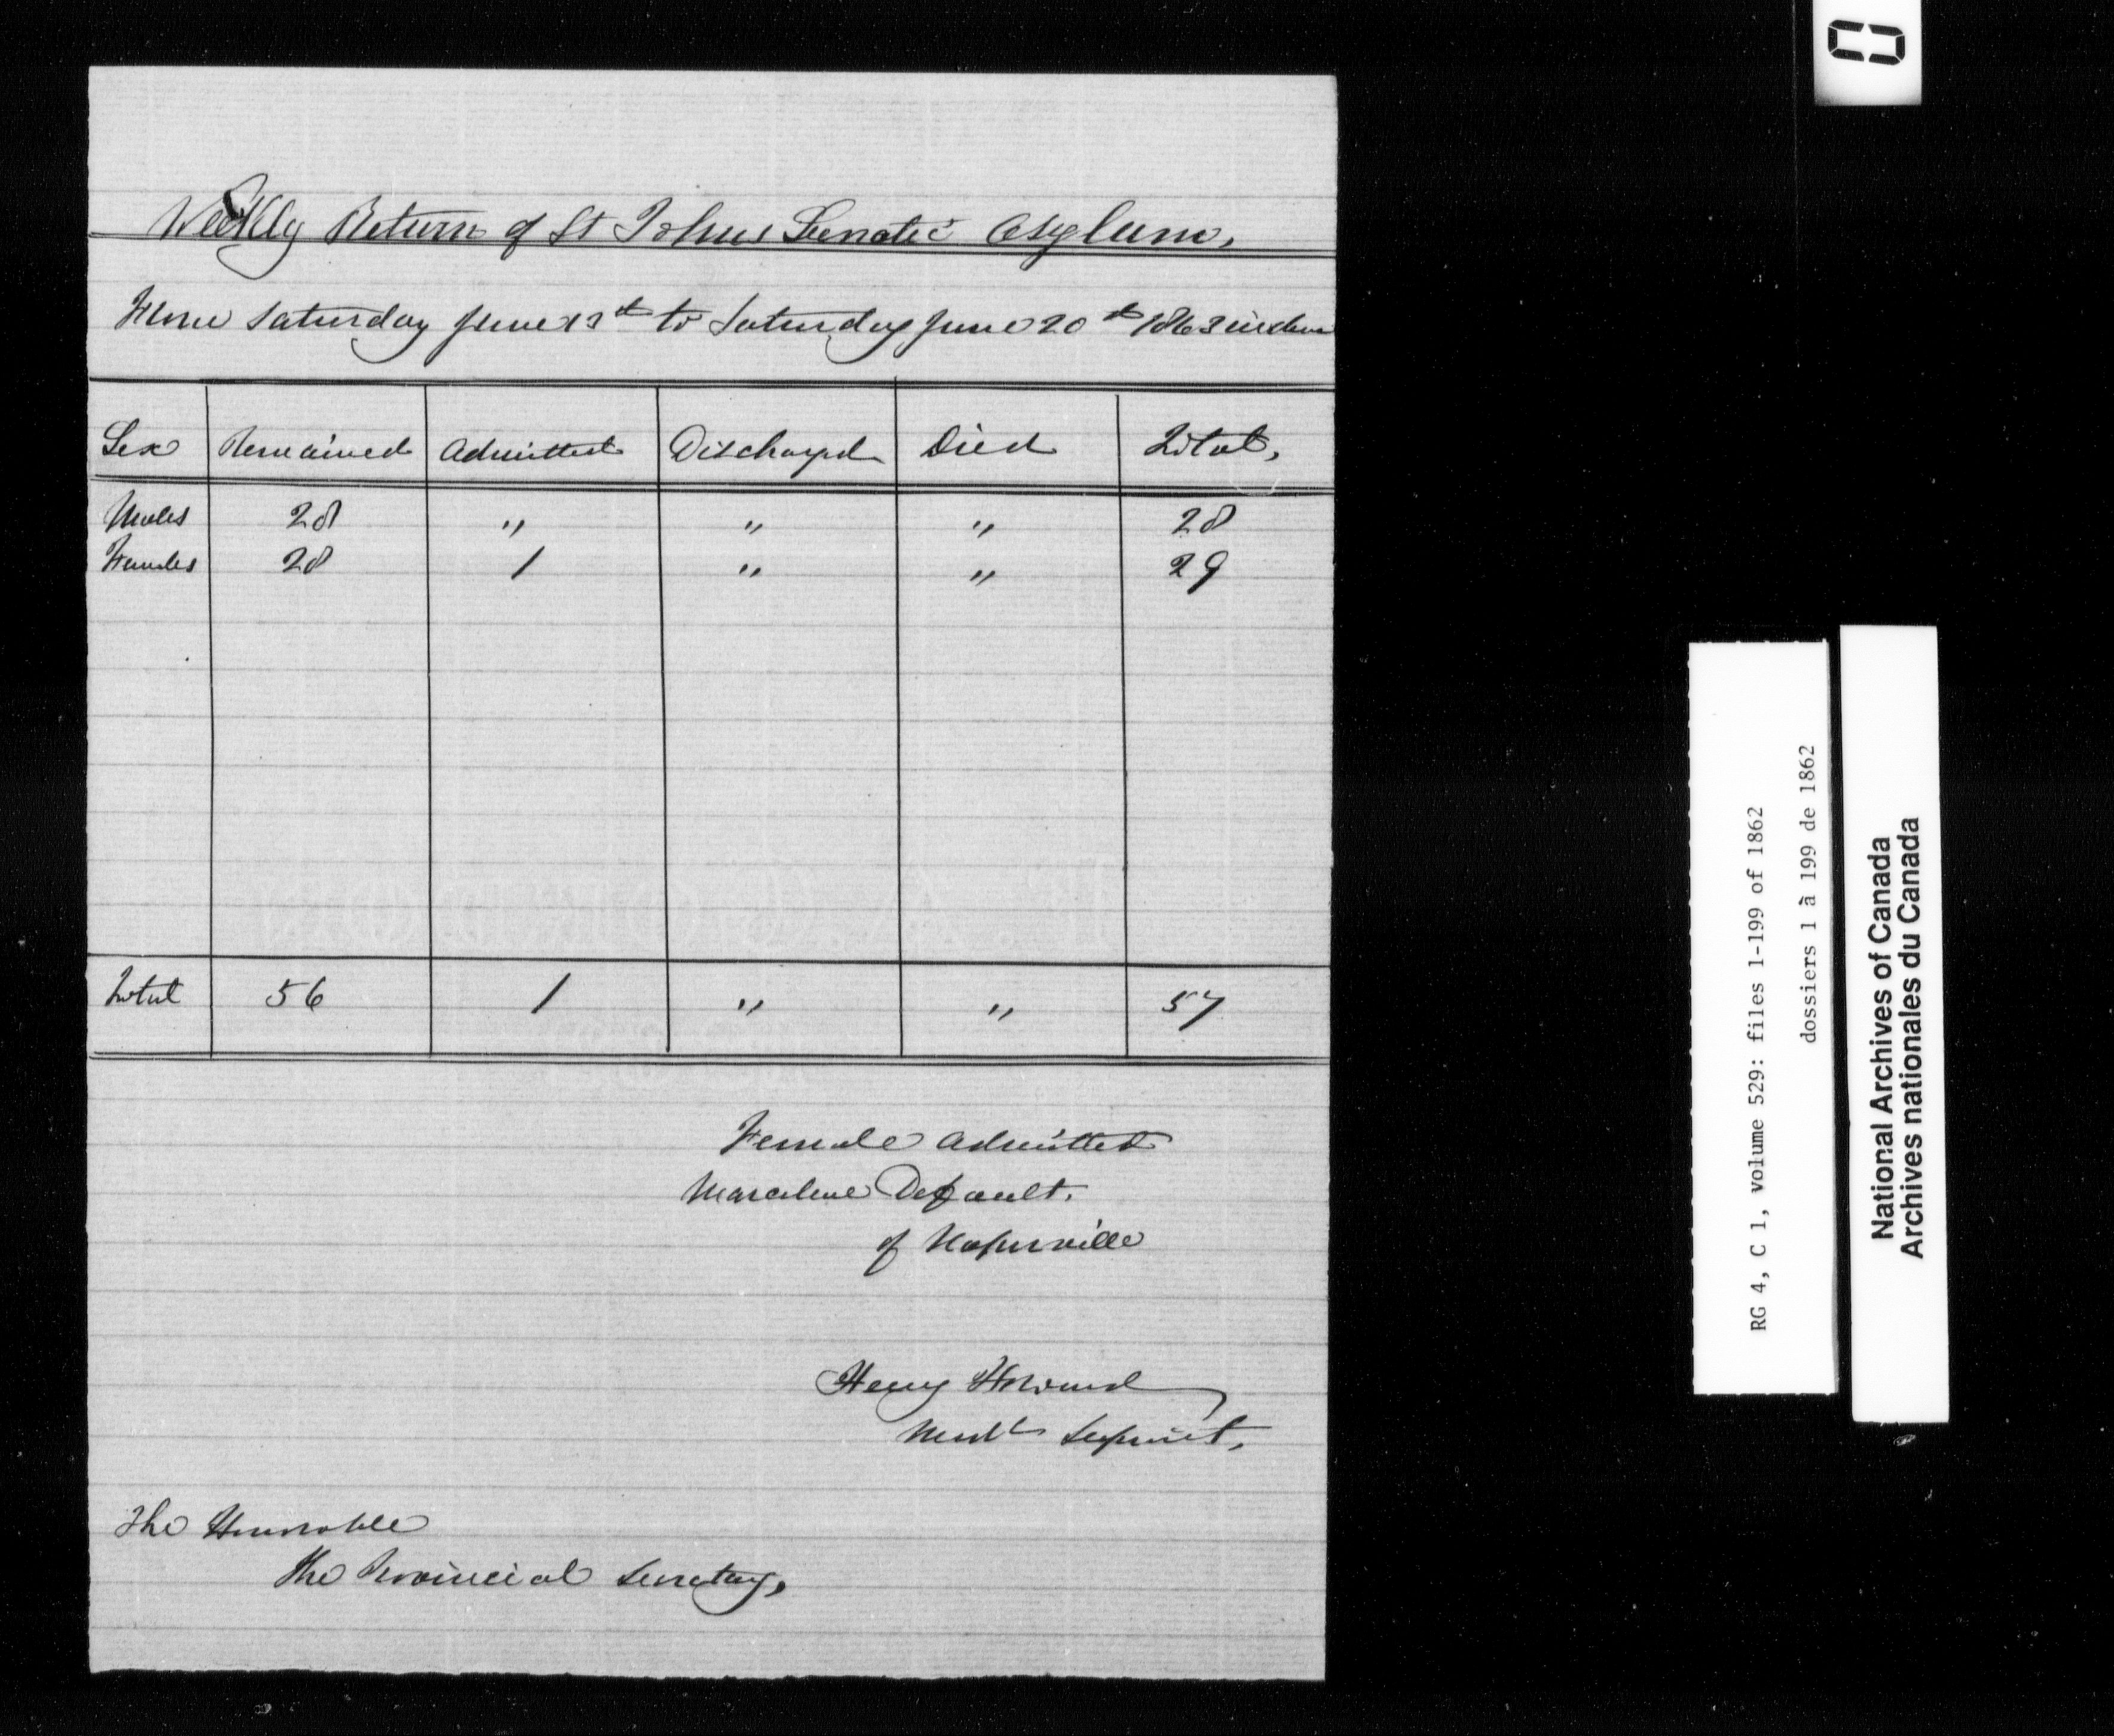 Weekly Return of St Johns Lunatic Asylum.
From Saturday June 13th to Saturday June 20th 1863 inclu
Sex Remained Admitted Discharged Died Total.
Males 28 " " " 28
Females 28 1 " " 29
Total 56 1 " " 57
Female Admitted
Marceline Default.
of Napierville
Henry Howard
Medl Suprint.
The Honorable
The Provincial Secretary.
RG 4, C 1, volume 529: files 1-199 of 1862
dossiers 1 à 199 de 1862
National Archives of Canada
Archives nationales du Canada